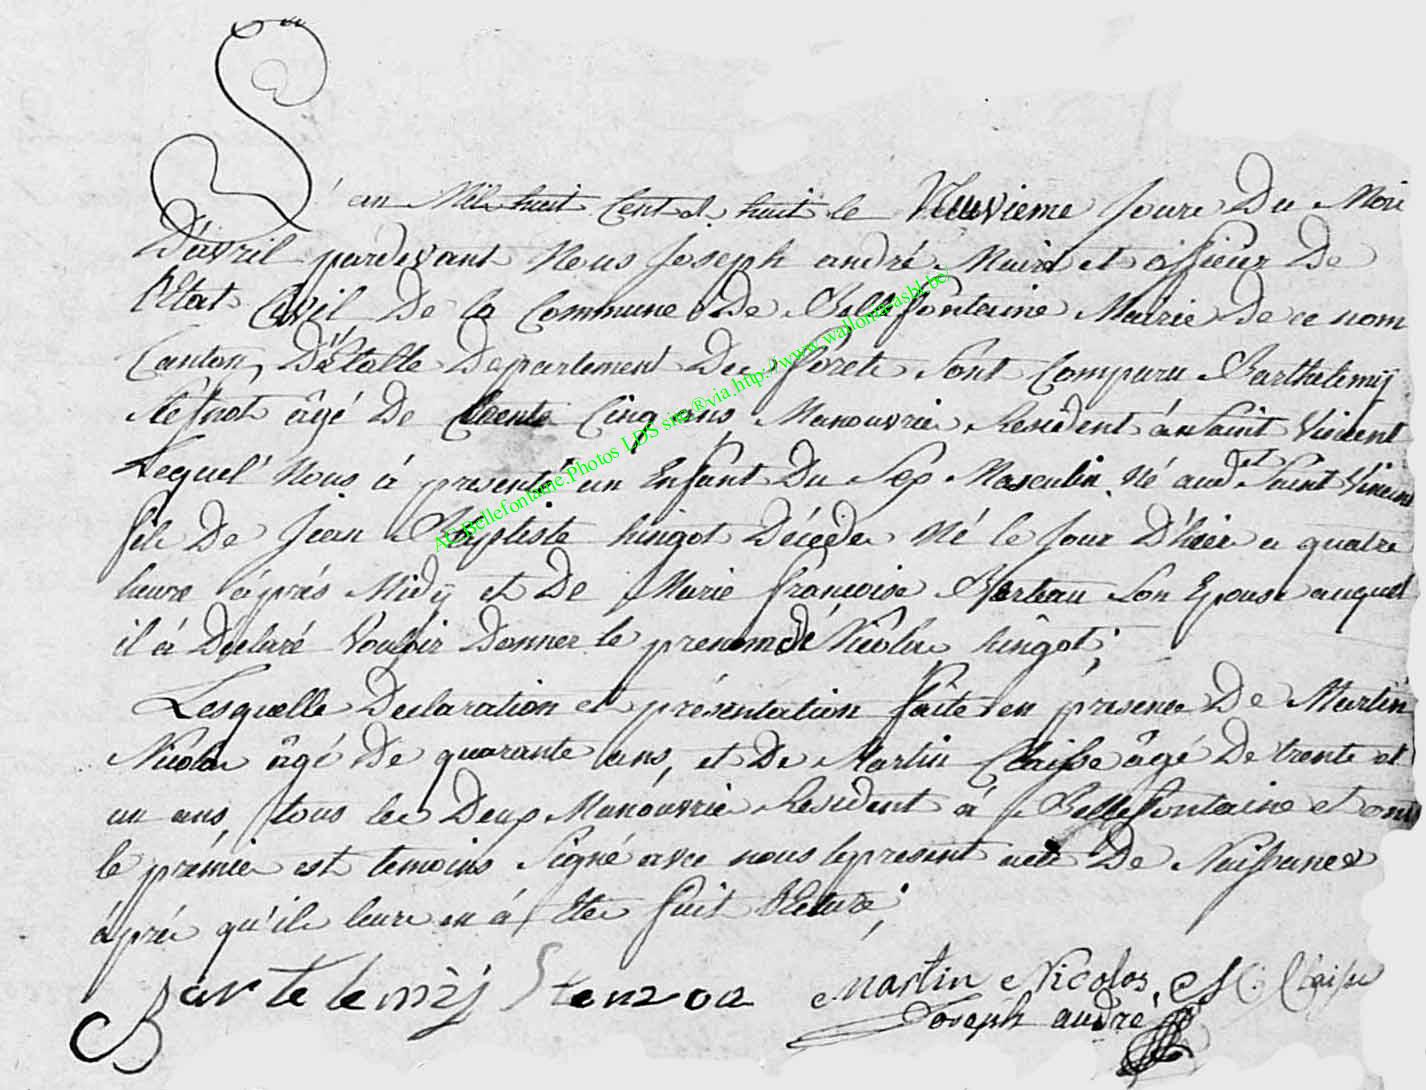 L'an Mil huit Cent et huit le Neuvieme Jour Du Moi
D'avril pardevant Nous Joseph andré Maire et officier De
l'Etat Civil De la Commune De Bellefontaine Mairie De ce nom
Canton D'Etalle Departement Des forets Sont Comparu Barthelemij
âgé De trente Cinq ans Manouvrie Resident á Saint Vincent
Lequel Nous á presenté un Enfant Du Sex Masculin Né audt Saint Vincent
fils De Jean Baptiste hingot Décédé Né le Jour D'hier a quatre
heure aprés Midij et De Marie francoise Son Epouse auquel
il á Declaré Vouloir Donner le prenom de Nicolas hingot;
Lesquelle Declaration et présentation faite en présence De Martin
Nicolas âgé De quarante ans, et De Martin Claisse âgé De trente et
un ans, tous les Deux Manouvrie Resident á Bellefontaine et ont
le prémier est temoins Signé avec nous le present acte De Naissance
áprés qu'il leure en á Eté fait lecture;
Bartelemij Martin Nicolas, M: Claisse
Joseph andré
AC Bellefontaine.Photos LDS site®via.http://www.wallonia-asbl.be/